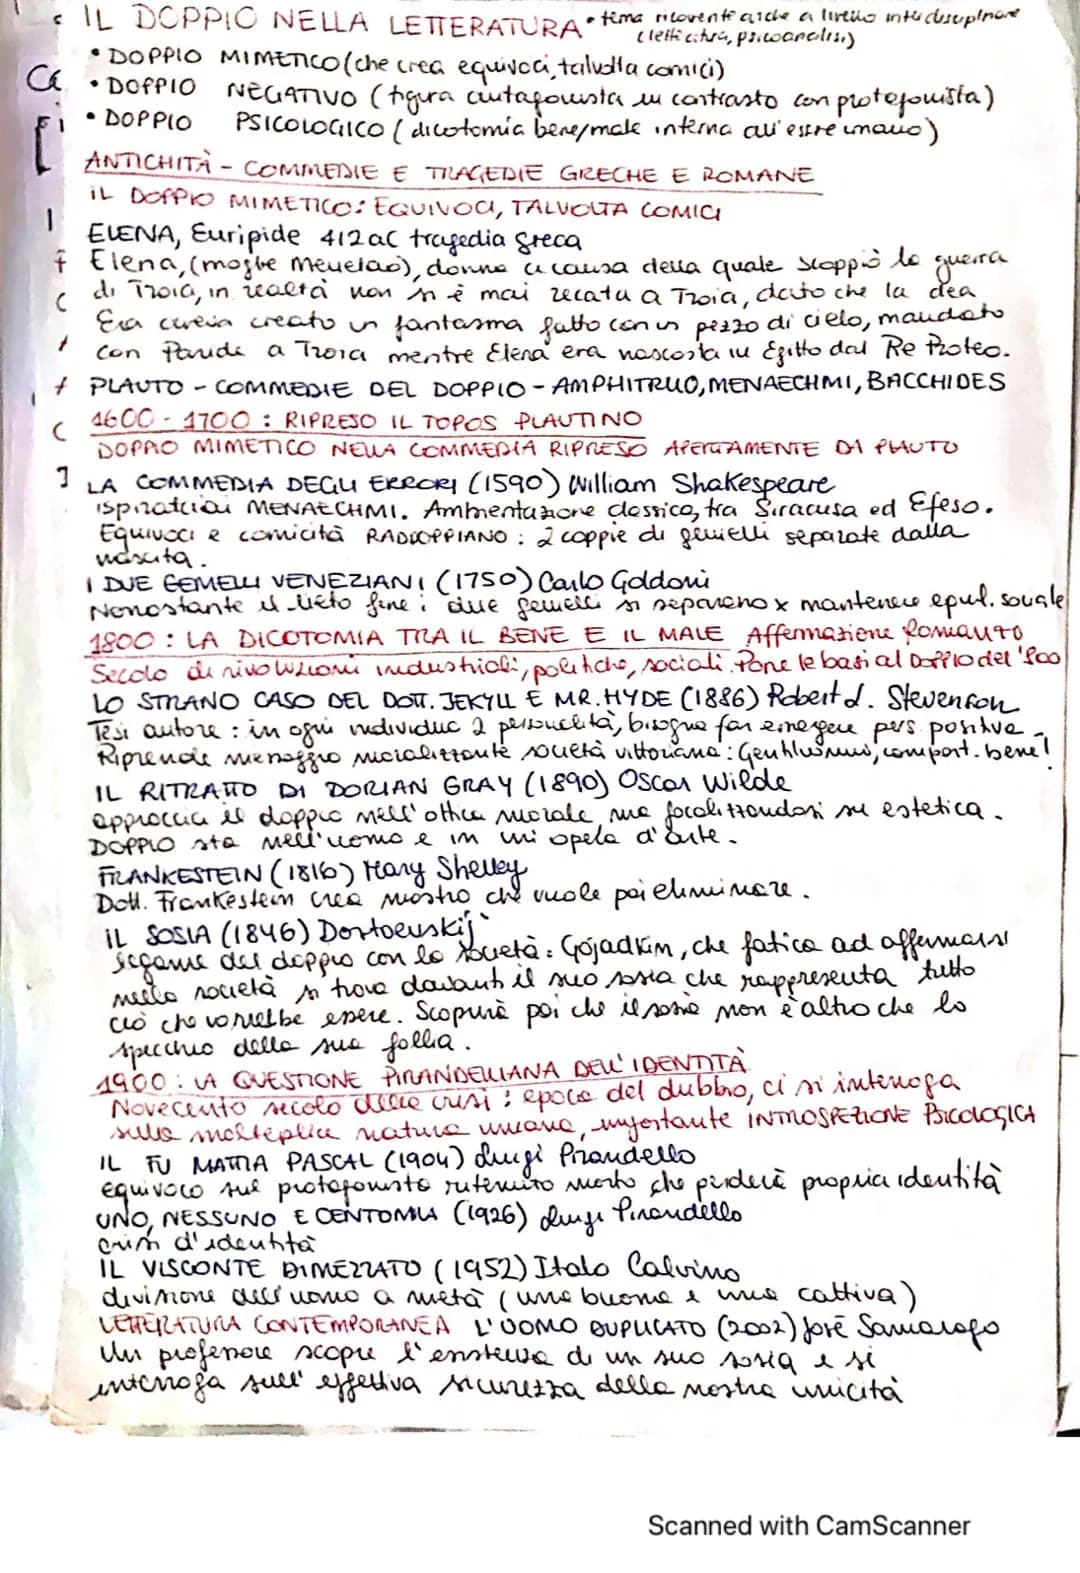 IL DOPPIO NELLA LETTERATURA • tema ricorrente anche a livello interdisciplinare
(letteratura, psicoanalisi)
• DOPPIO MIMETICO (che crea equivoci, talvolta comici)
• DOPPIO NEGATIVO (figura antagonista in contrasto con protagonista)
• DOPPIO PSICOLOGICO (dicotomia bene/male interna all'essere umano)
ANTICHITÀ - COMMEDIE E TRAGEDIE GRECHE E ROMANE
IL DOPPIO MIMETICO: EQUIVOCI, TALVOLTA COMICI
ELENA, Euripide 412 aC tragedia greca
Elena, (moglie Menelao), donna a causa della quale scoppiò la guerra
di Troia, in realtà non si è mai recata a Troia, dato che la dea
Era aveva creato un fantasma fatto con un pezzo di cielo, mandato
con Paride a Troia mentre Elena era nascosta in Egitto dal Re Proteo.
PLAUTO - COMMEDIE DEL DOPPIO - AMPHITRUO, MENAECHMI, BACCHIDES
1600 - 1700 : RIPRESO IL TOPOS PLAUTINO
DOPPIO MIMETICO NELLA COMMEDIA RIPRESO APERTAMENTE DA PLAUTO
LA COMMEDIA DEGLI ERRORI (1590) William Shakespeare
ispirata ai MENAECHMI. Ambientazione classica, tra Siracusa ed Efeso.
Equivoci e comicità RADDOPPIANO : 2 coppie di gemelli separate dalla
nascita.
I DUE GEMELLI VENEZIANI (1750) Carlo Goldoni
Nonostante il lieto fine i due gemelli si separano x mantenere equil. sociale
1800 : LA DICOTOMIA TRA IL BENE E IL MALE Affermazione Romanto
Secolo di rivoluzioni industriali, politiche, sociali. Pone le basi al Doppio del '800
LO STRANO CASO DEL DOTT. JEKYLL E MR. HYDE (1886) Robert L. Stevenson
Tesi autore : in ogni individuo 2 personalità, bisogna far emergere pers. positiva -
Riprende messaggio moralizzante società vittoriana : Gentlusmus, comport. bene!
IL RITRATTO DI DORIAN GRAY (1890) Oscar Wilde
approccia il doppio nell'ottica morale, ma focalizzandosi su estetica.
DOPPIO sta nell'uomo e in un'opera d'arte.
FRANKESTEIN (1816) Mary Shelley
Dott. Frankestein crea mostro che vuole poi eliminare.
IL SOSIA (1846) Dostoevskij
legame del doppio con la società : Gojadkin, che fatica ad affermarsi
nella società si trova davanti il suo sosia che rappresenta tutto
ciò che vorrebbe essere. Scoprirà poi che il sosia non è altro che lo
specchio della sua follia.
1900 : LA QUESTIONE PIRANDELLIANA DELL'IDENTITÀ
Novecento secolo delle crisi : epoca del dubbio, ci si interroga
sulla molteplice natura umana, importante INTROSPEZIONE PSICOLOGICA
IL FU MATTIA PASCAL (1904) Luigi Pirandello
equivoco sul protagonista ritenuto morto che perderà propria identità
UNO, NESSUNO E CENTOMILA (1926) Luigi Pirandello
crisi d'identità
IL VISCONTE DIMEZZATO (1952) Italo Calvino
divisione dell'uomo a metà (una buona e una cattiva)
LETTERATURA CONTEMPORANEA L'UOMO DUPLICATO (2002) José Samarago
Un professore scopre l'esistenza di un suo sosia e si
interroga sull'effettiva sicurezza della nostra unicità
Scanned with CamScanner